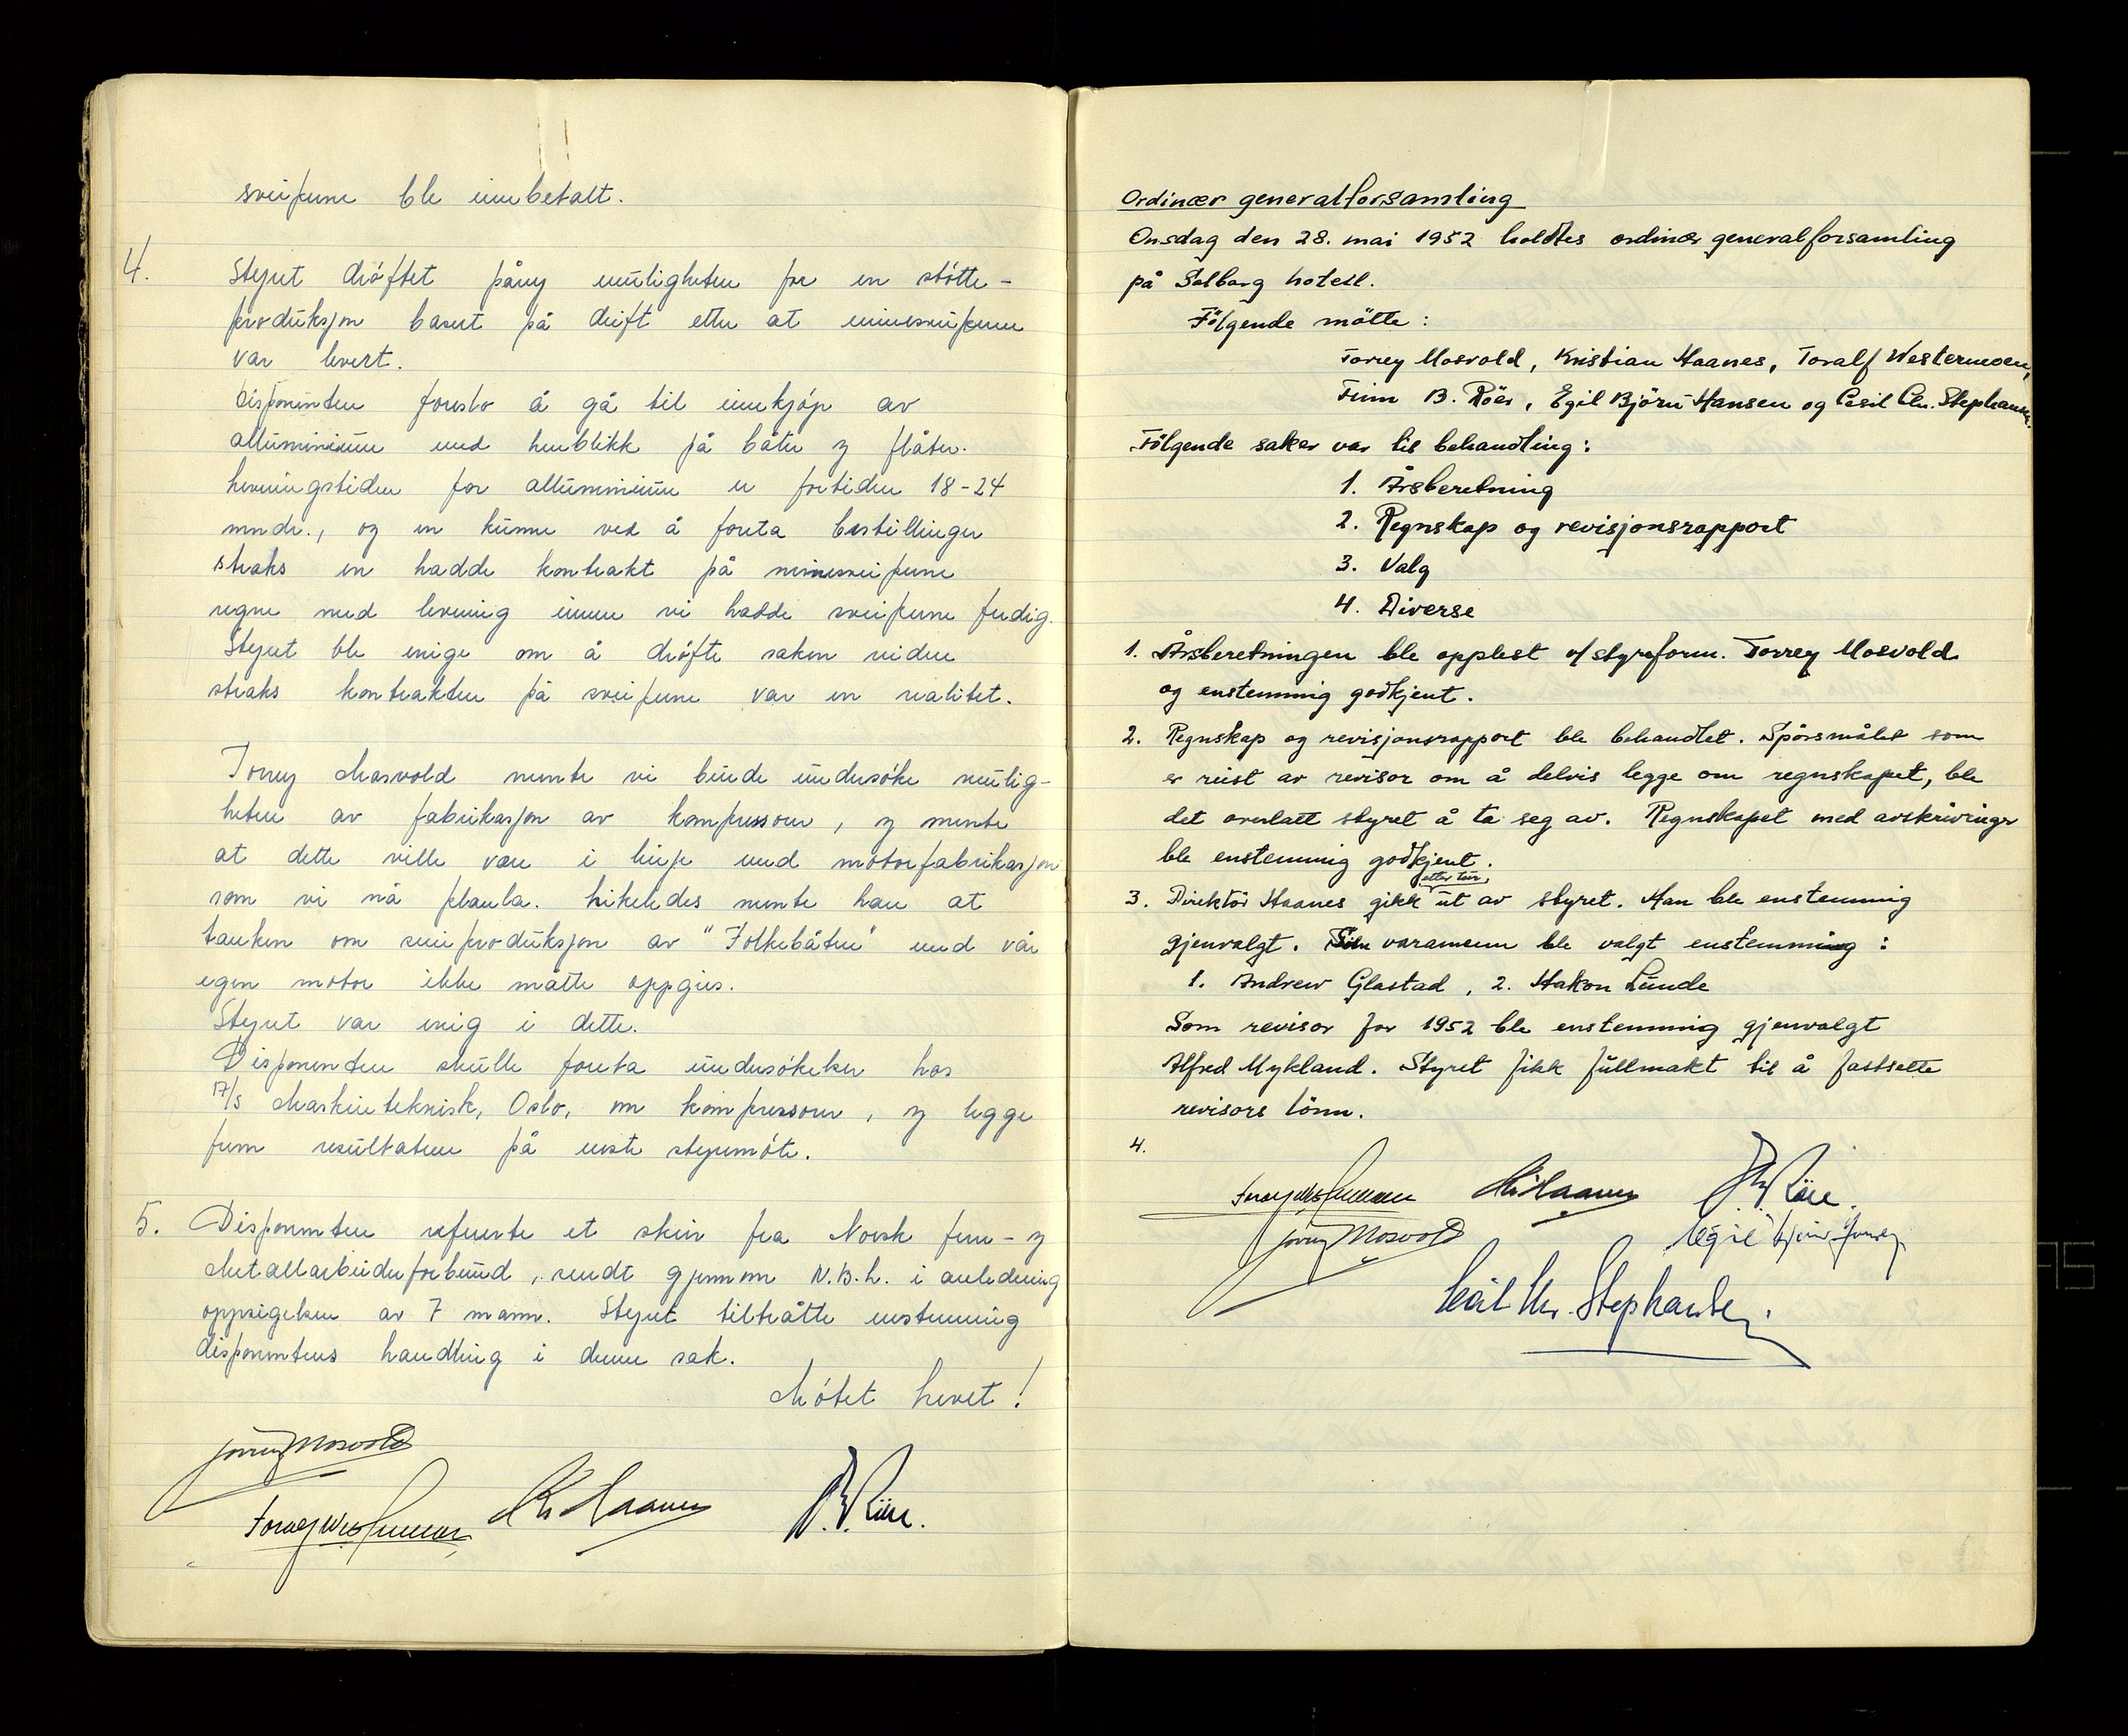 sveiperne ble innbetalt.
4. Styret drøftet påny muligheten for en støtte-
produksjon basert på drift etter at minesveiperne
var levert.
Disponenten foreslo å gå til innkjøp av
alluminium med henblikk på båter og flåter.
Leveringstiden for alluminium er fortiden 18-24
mndr., og en kunne ved å foreta bestillinger
straks en hadde kontrakt på minesveiperne
regne med levering innen vi hadde sveiperne ferdig.
Styret ble enige om å drøfte saken videre
straks kontrakten på sveiperne var en realitet.
Torrey Mosvold mente vi burde undersøke mulig-
heten av fabrikasjon av kompressorer, og mente
at dette ville være i linje med motorfabrikasjon
som vi nå planla. Likeledes mente han at
tanken om serieproduksjon av "Folkebåten" med vår
egen motor ikke måtte oppgies.
Styret var enig i dette.
Disponenten skulle foreta undersøkelser hos
A/S Maskinteknisk, Oslo, om kompressorer, og legge
frem resultatene på neste styremøte.
5. Disponenten refererte et skriv fra Norsk Jern- og
Metallarbeiderforbund, sendt gjennom N.B.L. i anledning
oppsigelsen av 7 mann. Styret tiltrådte enstemmig
disponentens handling i denne sak.
Møtet hevet!
Torrey Mosvold
Toralf Westermoen Kr. Haanes F.B. Röer.
Ordinær generalforsamling
Onsdag den 28. mai 1952 holdtes ordinær generalforsamling
på Salborg hotell.
Følgende møtte:
Torrey Mosvold, Kristian Haanes, Toralf Westermoen,
Finn B. Röer, Egil Björn Hansen og Cecil Chr. Stephansen.
Følgende saker var til behandling:
1. Årsberetning
2. Regnskap og revisjonsrapport
3. Valg
4. Diverse
1. Årsberetningen ble opplest v/styreform. Torrey Mosvold
og enstemmig godkjent.
2. Regnskap og revisjonsrapport ble behandlet. Spørsmålet som
er reist av revisor om å delvis legge om regnskapet, ble
det overlatt styret å ta seg av. Regnskapet med avskrivinger
ble enstemmig godkjent.
3. Direktör Haanes gikk etter tur, ut av styret. Han ble enstemmig
gjenvalgt. Som varamenn ble valgt enstemmig:
1. Andrew Glastad, 2. Hakon Lunde
Som revisor for 1952 ble enstemmig gjenvalgt
Alfred Mykland. Styret fikk fullmakt til å fastsette
revisors lönn.
4.
Toralf Westermoen Kr. Haanes F.B. Röer.
Torrey Mosvold Egil Björn Hansen
Cecil Chr. Stephansen.